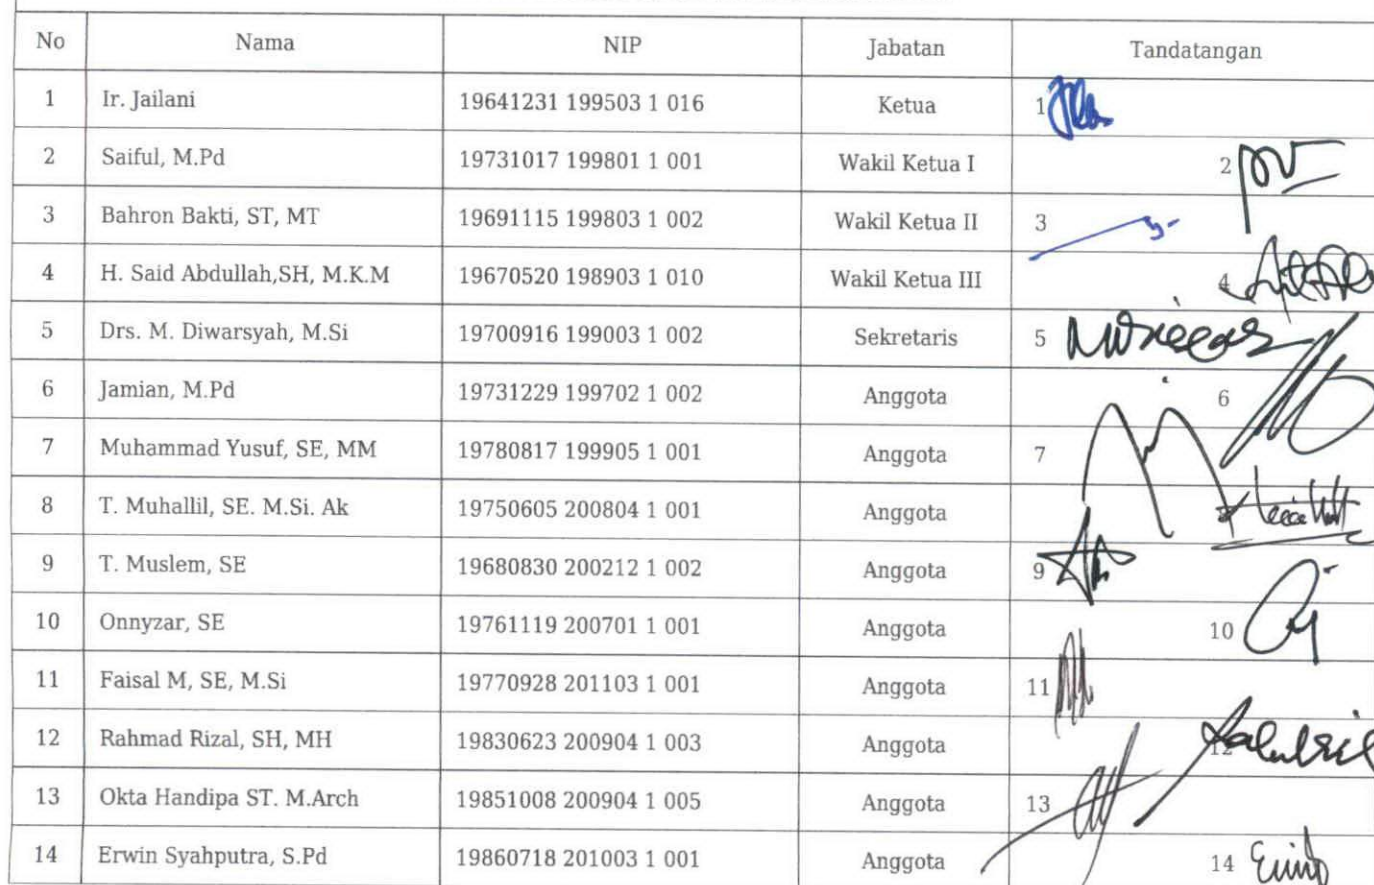 No Nama NIP Jabatan Tandatangan
1 Ir. Jailani 19641231 199503 1 016 Ketua 1
2 Saiful, M.Pd 19731017 199801 1 001 Wakil Ketua I 2
3 Bahron Bakti, ST, MT 19691115 199803 1 002 Wakil Ketua II 3
4 H. Said Abdullah,SH, M.K.M 19670520 198903 1 010 Wakil Ketua III 4
5 Drs. M. Diwarsyah, M.Si 19700916 199003 1 002 Sekretaris 5
6 Jamian, M.Pd 19731229 199702 1 002 Anggota 6
7 Muhammad Yusuf, SE, MM 19780817 199905 1 001 Anggota 7
8 T. Muhallil, SE. M.Si. Ak 19750605 200804 1 001 Anggota
9 T. Muslem, SE 19680830 200212 1 002 Anggota 9
10 Onnyzar, SE 19761119 200701 1 001 Anggota 10
11 Faisal M, SE, M.Si 19770928 201103 1 001 Anggota 11
12 Rahmad Rizal, SH, MH 19830623 200904 1 003 Anggota 12
13 Okta Handipa ST. M.Arch 19851008 200904 1 005 Anggota 13
14 Erwin Syahputra, S.Pd 19860718 201003 1 001 Anggota 14